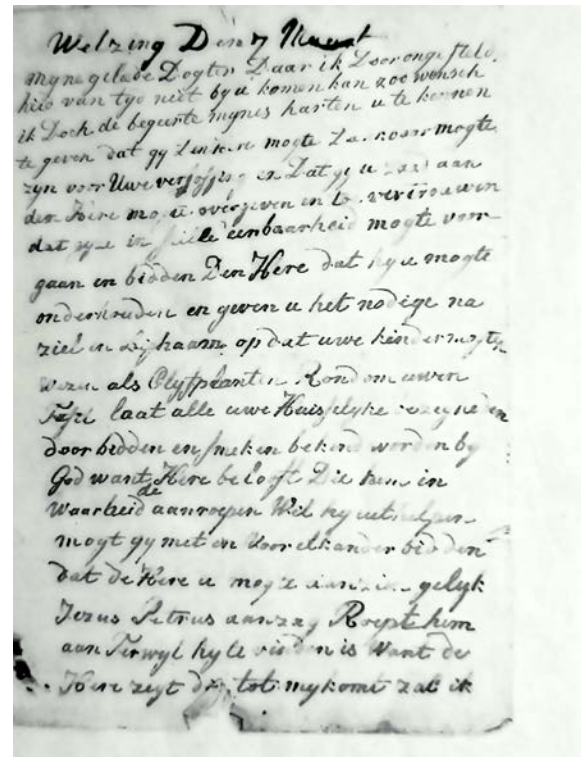 Welzing Den 7 Maart
myne geliede Dogter Daar ik Door ongesteld
hied van tyd niet by u komen kan zoo wensch
ik Doch de begeerte mynes harten u te kennen
te geven dat gy mogte mogte
zyn voor Uwe en Dat gy u aan
den Heere mogte overgeven en te vertrouwen
dat gy in stille eenbaarheid mogte voor
gaan en bidden Den Here dat hy u mogte
onderhouden en geven u het nodige na
ziel en Lighaam op dat uwe kinder mogte
wezen als Olyfplanten Rondom uwen
Tafel laat alle uwe Huisselyke
door bidden en smeken bekend worden by
God want de Here belooft Die hem in
Waarheid aanroepen Wil hy uithelpen
mogt gy met en voor elkander bidden
dat de Here u mogte aanzien gelyk
Jezus Petrus aanzag Roept hem
aan Terwyl hy te vinden is Want de
Here zegt die tot my komt zal ik